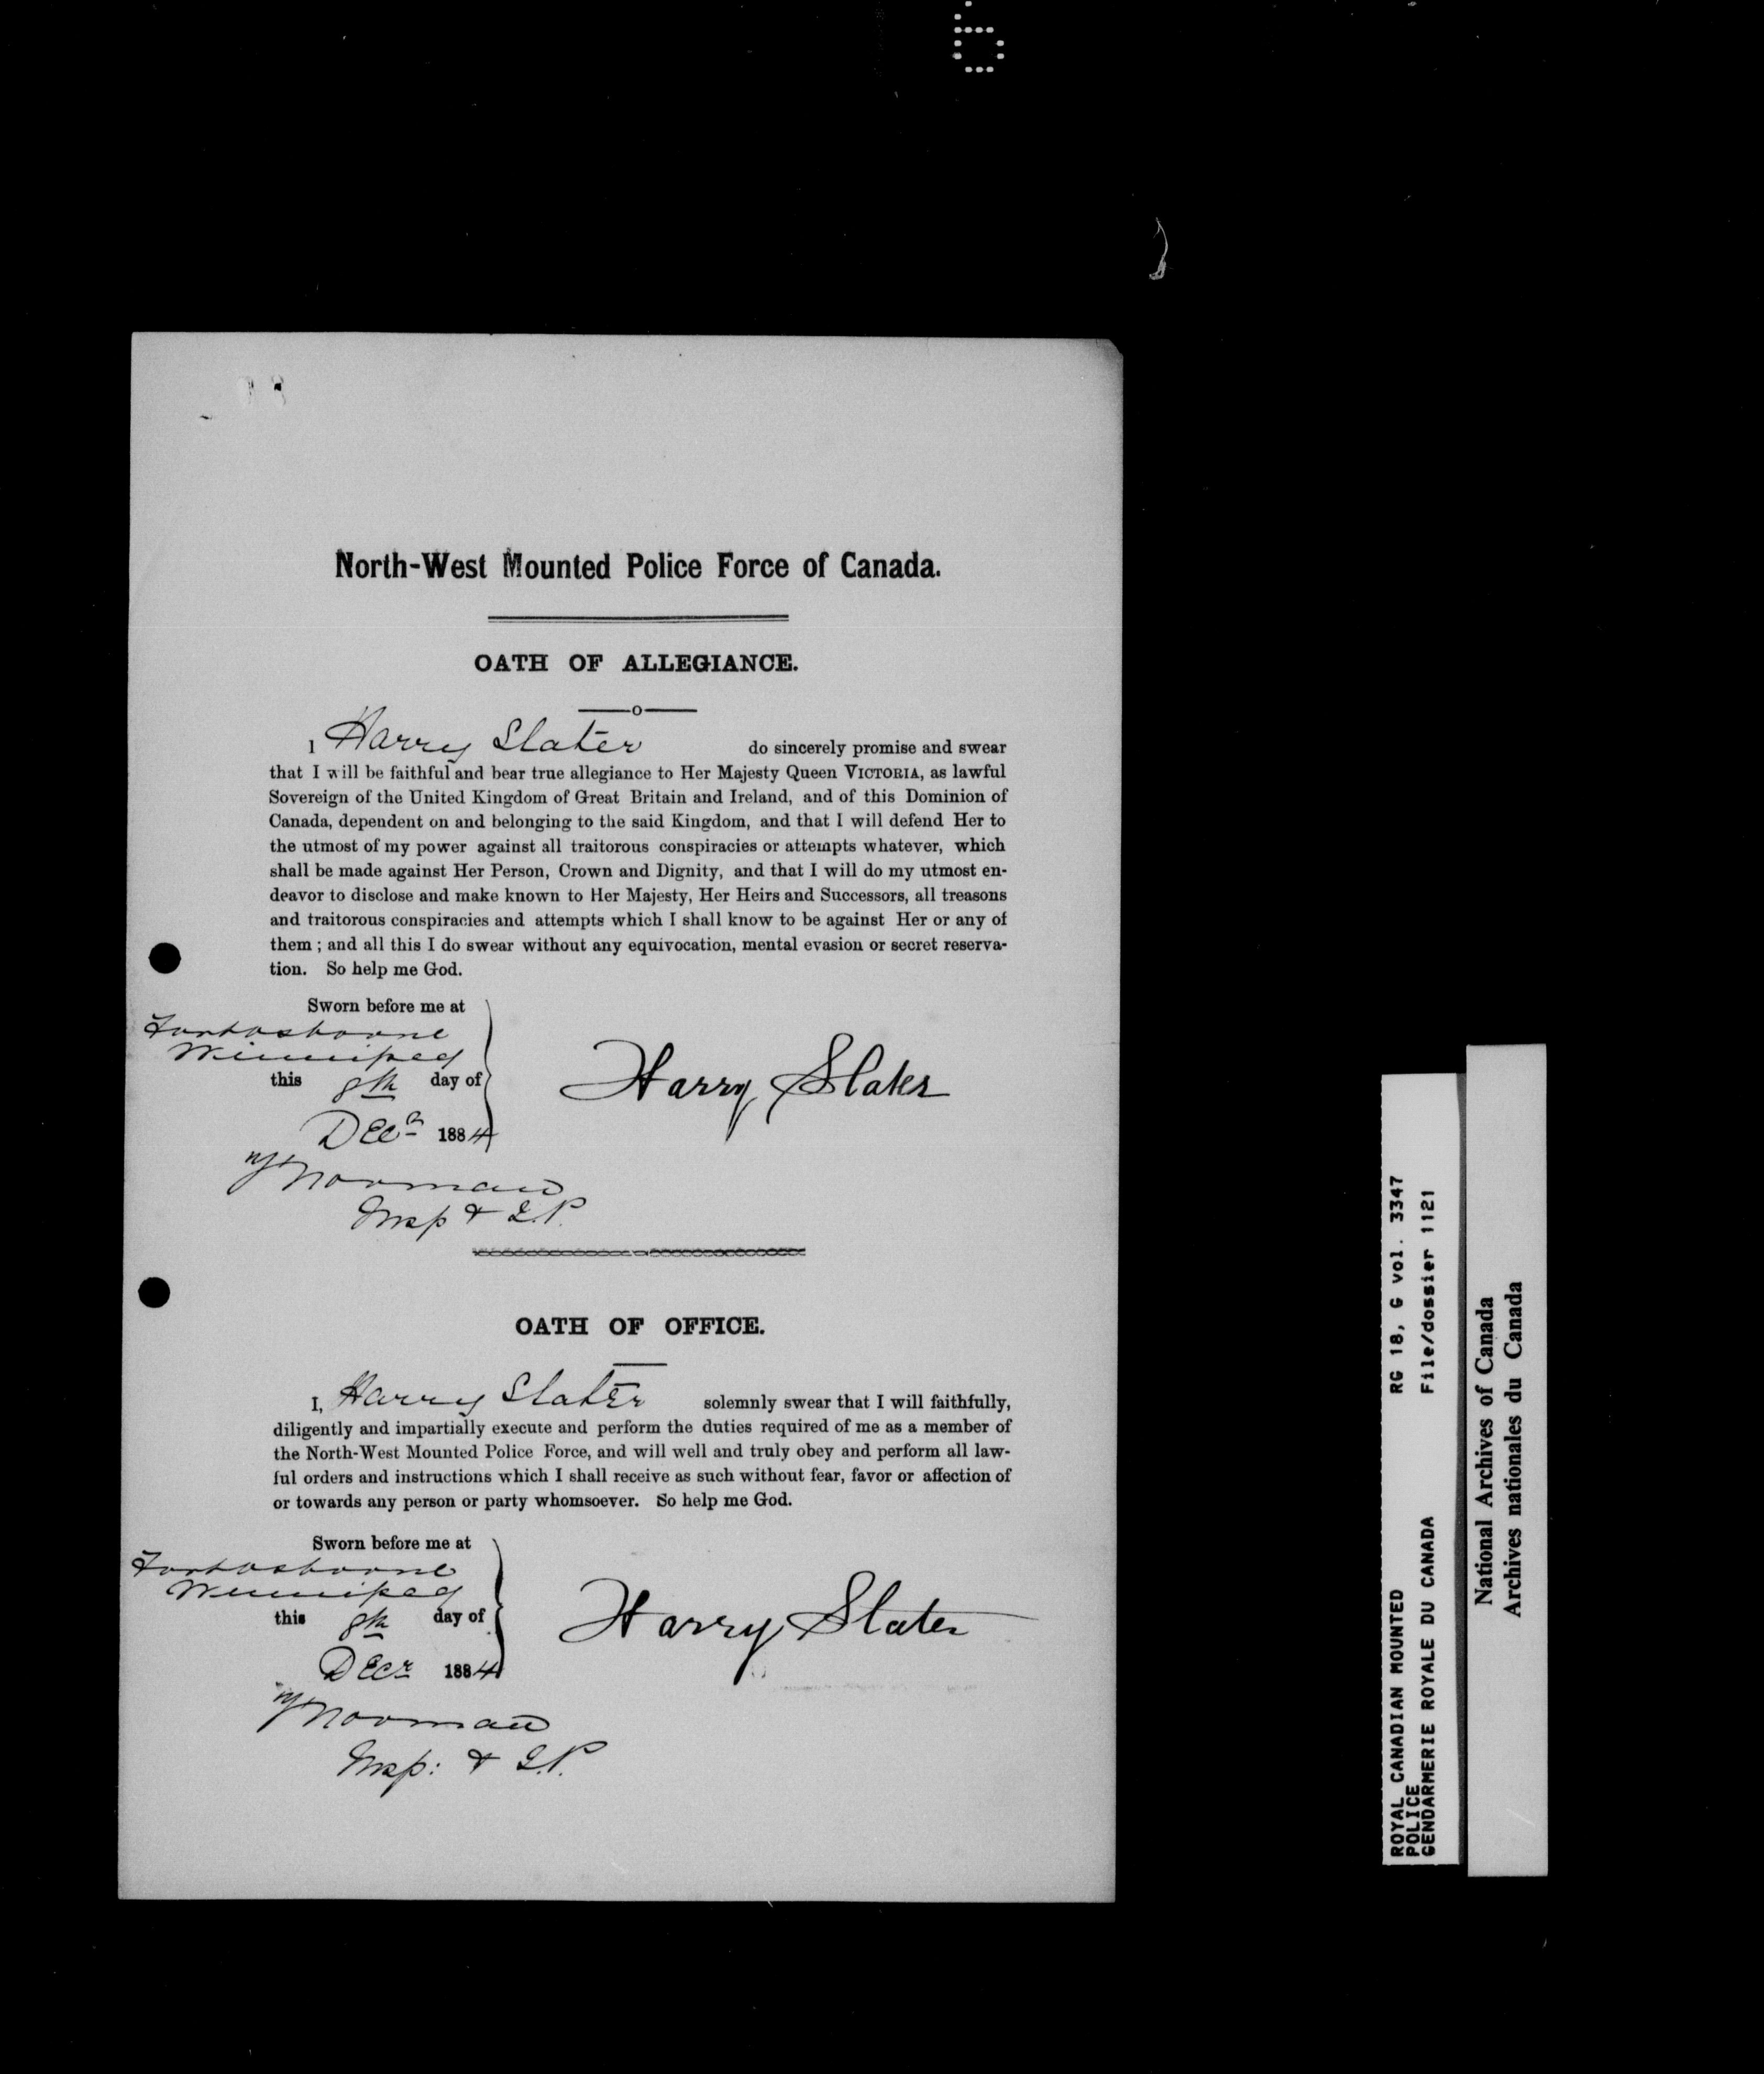 North-West Mounted Police Force of Canada.
OATH OF ALLEGIANCE.
I Harry Slater do sincerely promise and swear
that I will be faithful and bear true allegiance to Her Majesty Queen VICTORIA, as lawful
Sovereign of the United Kingdom of Great Britain and Ireland, and of this Dominion of
Canada, dependent on and belonging to the said Kingdom, and that I will defend Her to
the utmost of my power against all traitorous conspiracies or attempts whatever, which
shall be made against Her Person, Crown and Dignity, and that I will do my utmost en-
deavor to disclose and make known to Her Majesty, Her Heirs and Successors, all treasons
and traitorous conspiracies and attempts which I shall know to be against Her or any of
them ; and all this I do swear without any equivocation, mental evasion or secret reserva-
tion. So help me God.
Sworn before me at
Fort Osborne
Winnipeg
this 8th day of
Decr 1884
Harry Slater
Norman
Insp & J.P.
OATH OF OFFICE.
I, Harry Slater solemnly swear that I will faithfully,
diligently and impartially execute and perform the duties required of me as a member of
the North-West Mounted Police Force, and will well and truly obey and perform all law-
ful orders and instructions which I shall receive as such without fear, favor or affection of
or towards any person or party whomsoever. So help me God.
Sworn before me at
Fort Osborne
Winnipeg
this 8th day of
Decr 1884
Harry Slater
Norman
Insp: & J.P.
ROYAL CANADIAN MOUNTED RG 18, G vol. 3347
POLICE
GENDARMERIE ROYALE DU CANADA File/dossier 1121
National Archives of Canada
Archives nationales du Canada